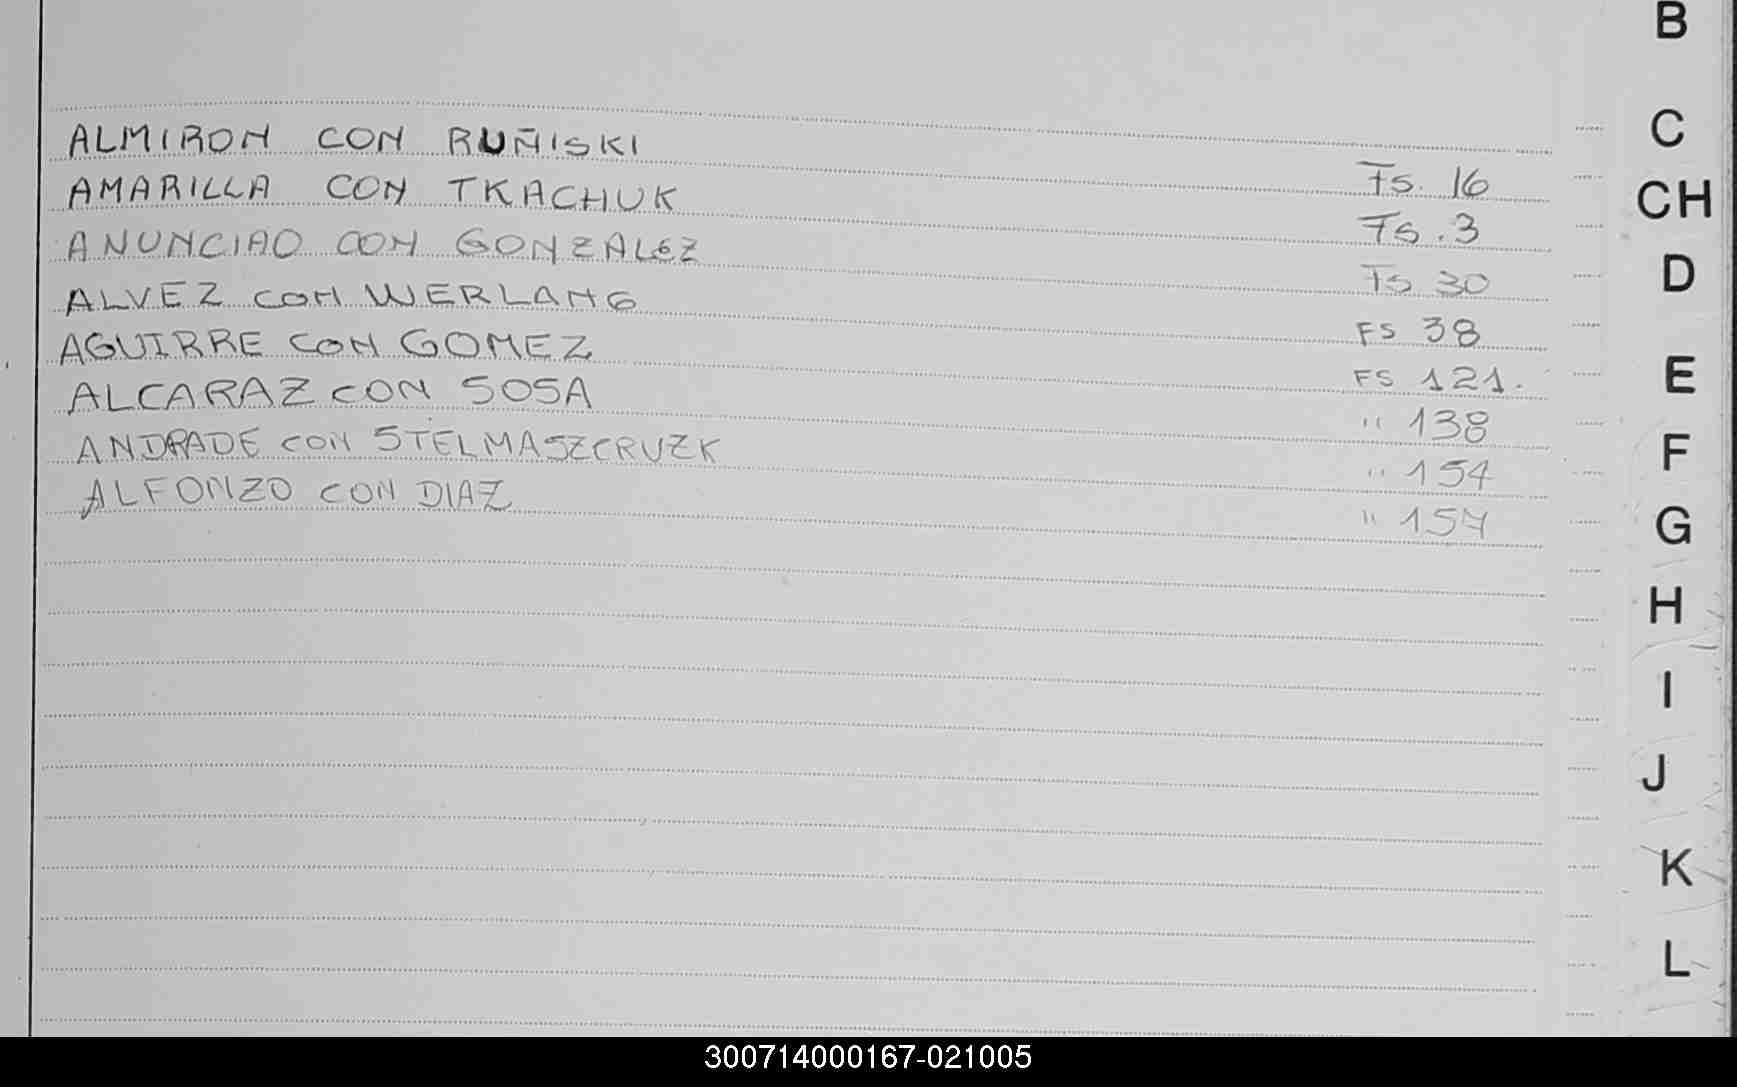 B
C
CH
D
E
F
G
H
I
J
K
L
ALMIRON CON RUÑISKI Fs. 16
AMARILLA CON TKACHUK Fs. 3
ANUNCIAO CON GONZALEZ Fs 30
ALVEZ CON WERLANG FS 38
AGUIRRE CON GOMEZ FS 121.
ALCARAZ CON SOSA " 138
ANDRADE CON STELMASZCRUZK " 154
ALFONZO CON DIAZ " 157
300714000167-021005